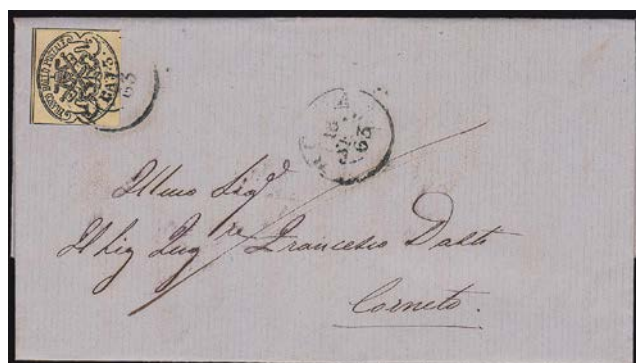 FRANCO BOLLO POSTALE
63
18
63
Illmo Sigr
Il Sig Ingre Francesco Dasti
Corneto.